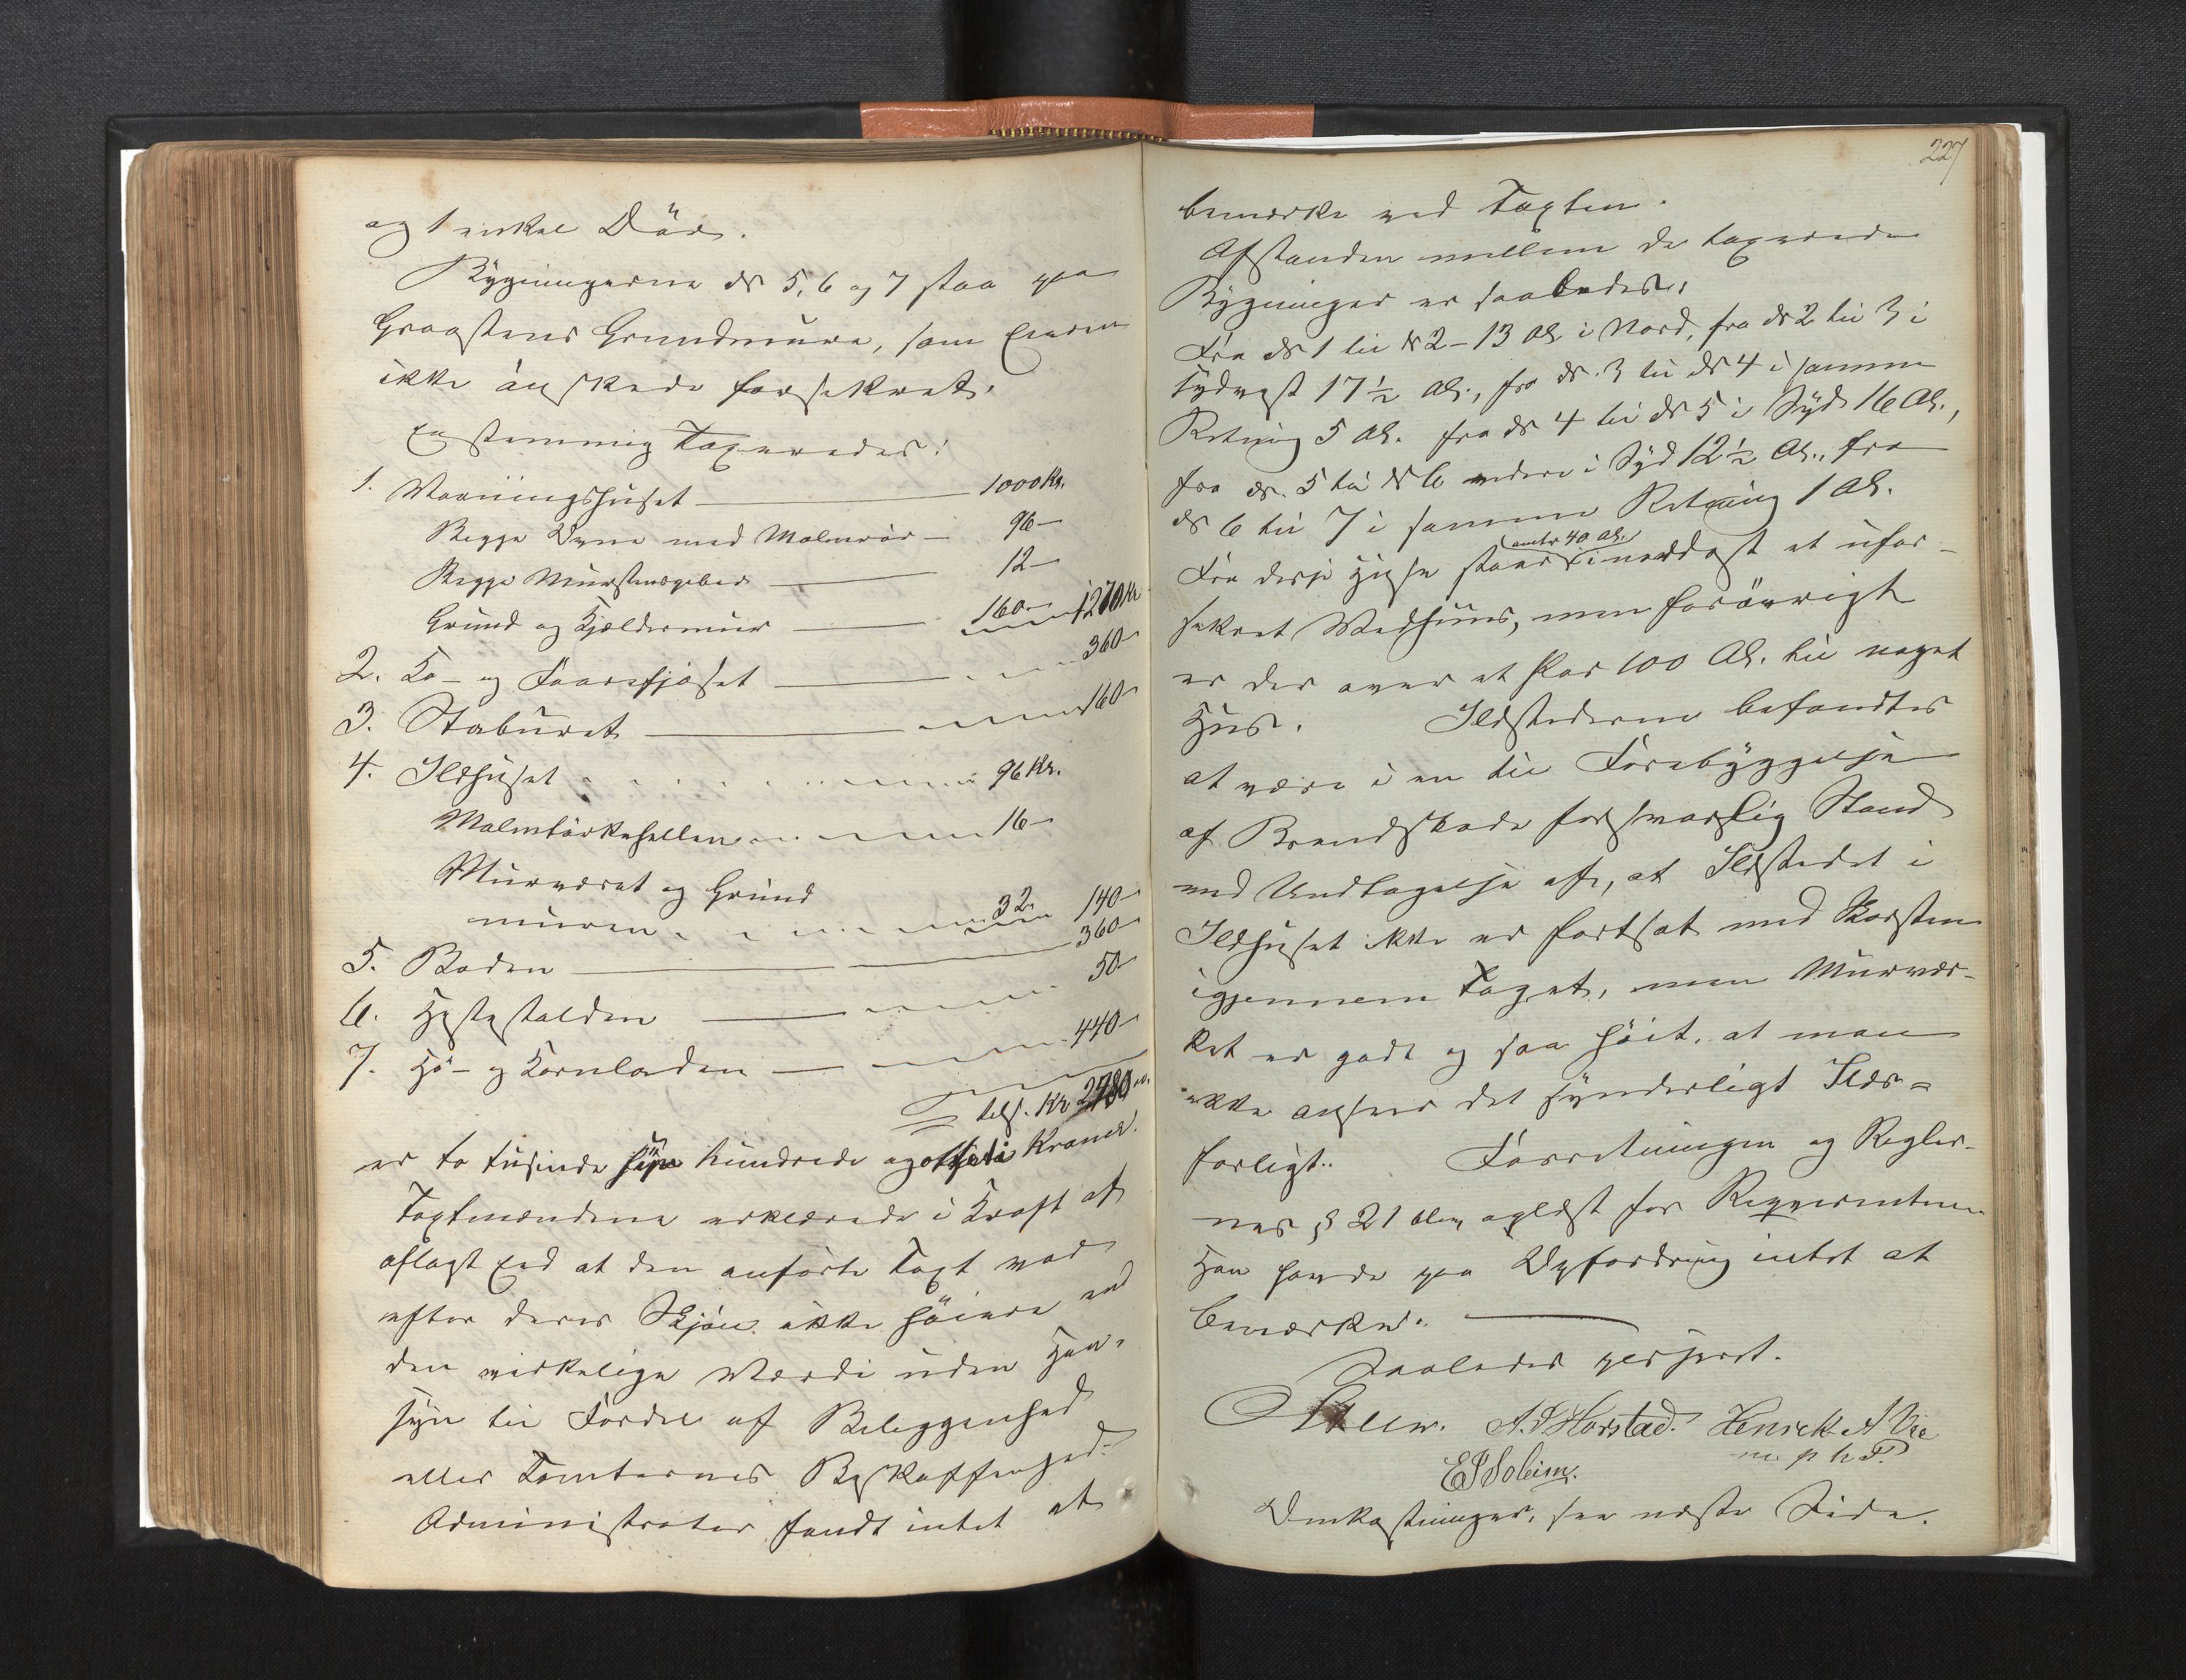 og 1 enkel Dör.
Bygningerne № 5, 6 og 7 staa paa
Graastens Grundmure, som Eieren
ikke önskede forsikret.
Enstemmig taxeredes:
1. Vaaningshuset 1000 Kr.
Begge Ovne med Malmrör 96 —
Begge Murstensgeber 12 —
Grund og Kjeldermur 160 — 1270 Kr
2. Ko- og Faarefjöset 360 —
3. Staburet 160 —
4. Ildhuset 96 Kr.
Malmtörkehellen 16 —
Murværet og Grund
muren 32 140 —
5. Boden 360 —
6. Hestestalden 50 —
7. Hö- og Kornladen 440 —
tils. Kr 2780
er to tusinde syv hundrede og otteti Kroner.
Taxtmændene erklærede i Kraft af
aflagt Eed at den anförte Taxt var
efter deres Skjön ikke höiere end
den virkelige Værdi uden Hen-
syn til Fordel af Beliggenhed
eller Tomternes Beskaffenhed.
Administrator fandt intet at
227
bemærke ved Taxten.
Afstanden mellem de taxerede
Bygninger er saaledes:
Fra № 1 til № 2 - 13 Al. i Nord, fra № 2 til 3 i
Sydvest 17 ½ Al., fra № 3 til № 4 i samme
Retning 5 Al. fra № 4 til № 5 i Syd 16 Al.,
fra № 5 til № 6 videre i Syd 12 ½ Al., fra
№ 6 til 7 i samme Retning 1 Al.
omtr 40 Al.
Fra disse Huse staar i nordost et ufor-
sikret Vedhuus, men forövrigt
er der over et Par 100 Al. til noget
Huus. Ildstederne befandtes
at være i en til Forebyggelse
af Brandskade forsvarlig Stand
med Undtagelse af, at Ildstedet i
Ildhuset ikke er fortsat med Skorsten
igjennem Taget, men Murvær-
ket er godt og saa höit, at man
ikke anseer det synderligt Ilds-
farligt. Forretningen og Regler-
nes § 21 blev oplæst for Reqvirenten.
Han havde paa Opfordring intet at
bemærke.
Saaledes passeret.
A. J. Horstad. Henrick A Vie
m p h P.
E J Soleim.
Omkostninger, see næste Side.